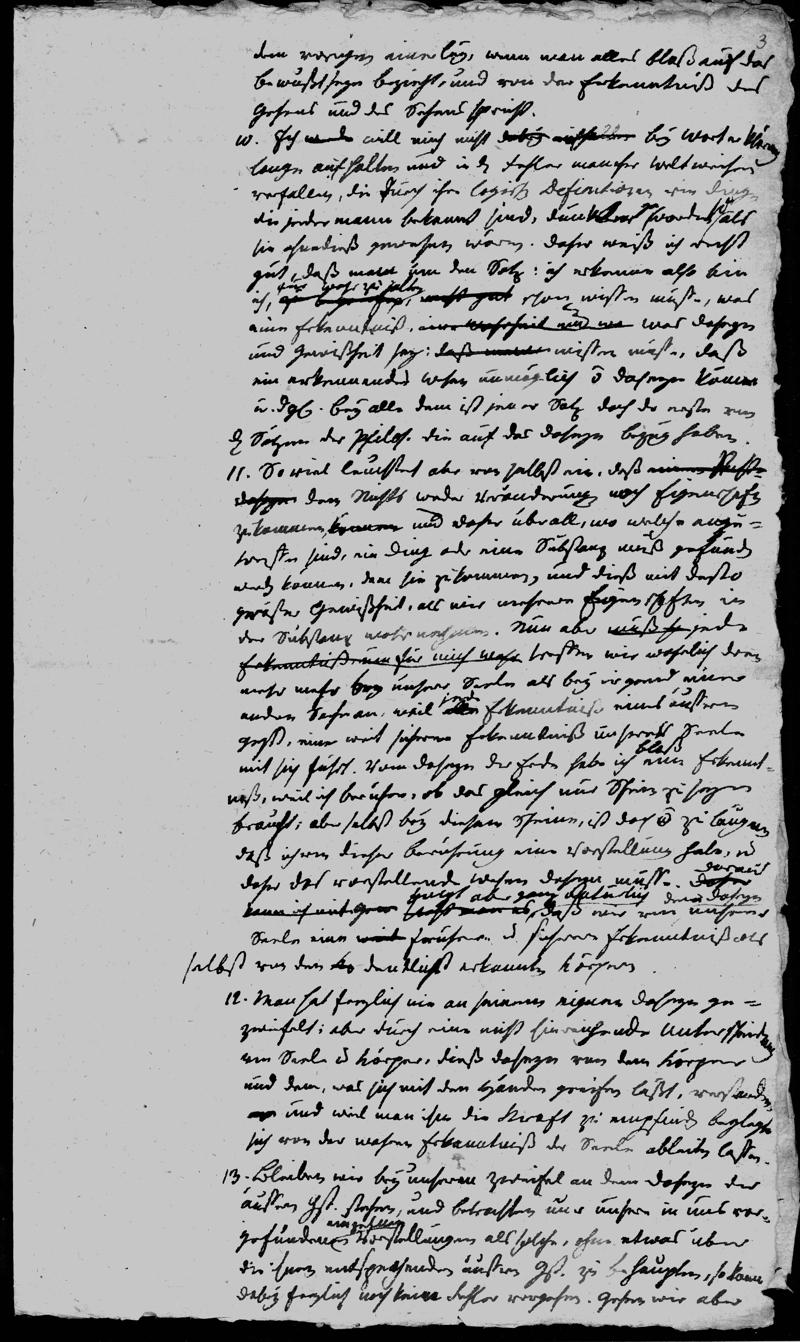 3
dem vorigen einerley, wenn man alles bloß auf das
Bewußtseyn bezieht, und von der Erkenntniß des
Gehens und des Sehens spricht.
10. Ich will mich nicht bey Worter
lange aufhalten und in d Fehler mancher Weltweisen
verfallen, die durch ihre Definitionen Dinge
die jedermann bekannt sind, dunkler worden als
sie ohnedieß gewesen wären. Daher weiß ich recht
gut, daß man um den Satz: ich erkenne also bin
ich, für wahr zu halten schon wissen müsse, was
eine Erkenntniß, was Daseyn
und Gewißheit sey: daß man wissen müsse, daß
ein erkennendes Wesen unmöglich daseyn könne
u. dgl. Bey alle dem ist jener Satz doch der erste von
d Sätzen der Philos. die auf das Daseyn bezug haben.
11. So viel leuchtet aber von selbst ein, daß
dem Nichts weder Veränderung noch Eigenschaft
zukommen, und daher überall, wo welche anzu=
treffen sind, ein Ding oder eine Substanz muß gefunden
werd können, dem sie zukommen, und dieß mit desto
größrer Gewißheit, als wir mehrere Eigenschaften in
der Substanz wahrnehmen. Nun aber jede
Erkenntniß treffen wir wahrlich
mehr bey unserer Seele als bey irgend einer
andern Sache an, weil jede Erkenntniß eines äussern
gegst, eine weit sicherere Erkenntniß unserer Seele
mit sich führt. Vom Daseyn der Erde habe ich bloß eine Erkennt=
niß, weil ich berühre, ob das gleich nur Schein zu seyn
braucht; aber selbst bey diesem Scheine, ist doch zu läugnen
daß ich von dieser Berührung eine Vorstellung habe, u
daher das vorstellende Wesen daseyn müsse. daraus
folgt aber ganz natürlich, daß wir von dem Daseyn unserer
Seele eine frühere u sicherere Erkenntniß als
selbst von den deutlichst erkannten Körpern.
12. Man hat freylich nie an seinem eigenen Daseyn ge=
zweifelt; aber durch eine nicht hinreichende Unterscheidung
von Seele u Körper, dieß Daseyn von dem Körper
und dem, was sich mit den Händen greifen läßt, verstanden,
und weil man ihm die Kraft zu empfinden beylegte
sich von der wahren Erkenntniß der Seele ableiten lassen.
13. Bleiben wir bey unserem Zweifel an dem Daseyn der
äussern Gst. stehen, und betrachten nur unsere in uns vor=
gefundenen Vorstellungen als solche, ohne etwas über
die ihnen entsprechenden äussern Gst. zu behaupten, so kann
dabey freylich noch keine Fehler vorgehen. Gehen wir aber